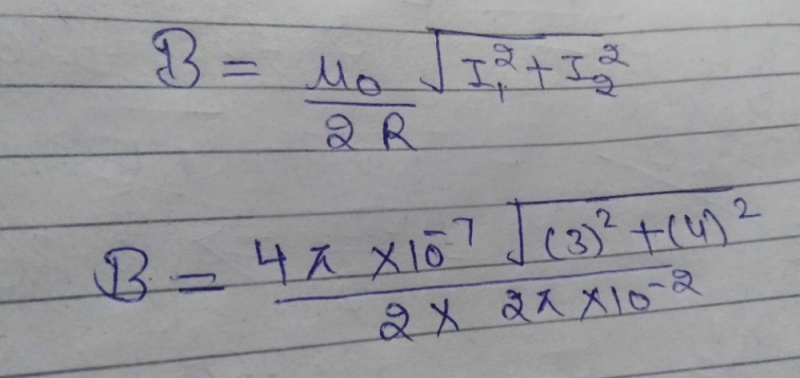 B = μ₀/2R √(I₁² + I₂²)
B = 4π × 10⁻⁷ √((3)² + (4)²) / 2 × 2π × 10⁻²